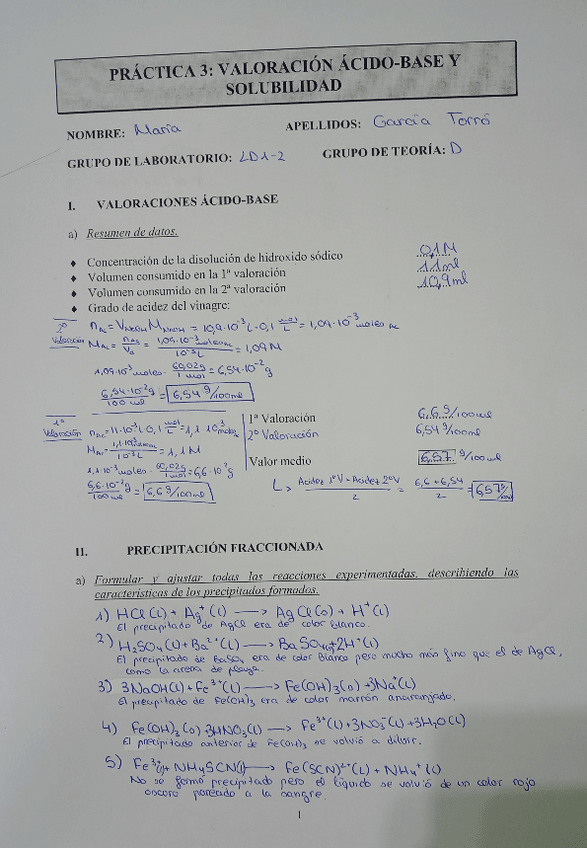 PRÁCTICA 3: VALORACIÓN ÁCIDO-BASE Y
SOLUBILIDAD
NOMBRE: María APELLIDOS: García Torró
GRUPO DE LABORATORIO: LD1-2 GRUPO DE TEORÍA: D
I. VALORACIONES ÁCIDO-BASE
a) Resumen de datos.
♦ Concentración de la disolución de hidroxido sódico 0,1M
♦ Volumen consumido en la 1ª valoración 11ml
♦ Volumen consumido en la 2ª valoración 10,9ml
♦ Grado de acidez del vinagre:
2º Valoración nAc = VNaOH MNaOH = 10,9·10⁻³L·0,1 mol/L = 1,09·10⁻³ moles Ac
MAc = nAc/V0 = 1,09·10⁻³moles Ac/10⁻³L = 1,09M
1,09·10⁻³moles · 60,02g/1mol = 6,54·10⁻²g
6,54·10⁻²g/100ml = 6,54 g/100ml
1º Valoración nAc = 11·10⁻³L·0,1 mol/L = 1,1·10⁻³moles
1,1·10⁻³moles/10⁻³L = 1,1M
1,1·10⁻³moles · 60,02g/1mol = 6,6·10⁻²g
6,6·10⁻²g/100ml = 6,6g/100ml
1ª Valoración 6,6g/100ml
2º Valoración 6,54g/100ml
Valor medio 6,57 g/100ml
Acidez 1ºV + Acidez 2ºV/2 = 6,6+6,54/2 = 6,57g/100ml
II. PRECIPITACIÓN FRACCIONADA
a) Formular y ajustar todas las reacciones experimentadas, describiendo las
características de los precipitados formados.
1) HCl(l) + Ag⁺(l) → AgCl(s) + H⁺(l)
El precipitado de AgCl era de color blanco.
2) H₂SO₄(l) + Ba²⁺(l) → BaSO₄(s)+2H⁺(l)
El precipitado de BaSO₄ era de color blanco pero mucho más fino que el de AgCl,
como la arena de playa.
3) 3NaOH(l) + Fe³⁺(l) → Fe(OH)₃(s) +3Na⁺(l)
El precipitado de Fe(OH)₃ era de color marrón anaranjado.
4) Fe(OH)₃(s) + 3HNO₃(l) → Fe³⁺(l) + 3NO₃⁻(l) + 3H₂O(l)
El precipitado anterior de Fe(OH)₃ se volvió a diluir.
5) Fe³⁺(l) + NH₄SCN(l) → Fe(SCN)²⁺(l) + NH₄⁺(l)
No se formó precipitado pero el líquido se volvió de un color rojo
oscuro parecido a la sangre.
1